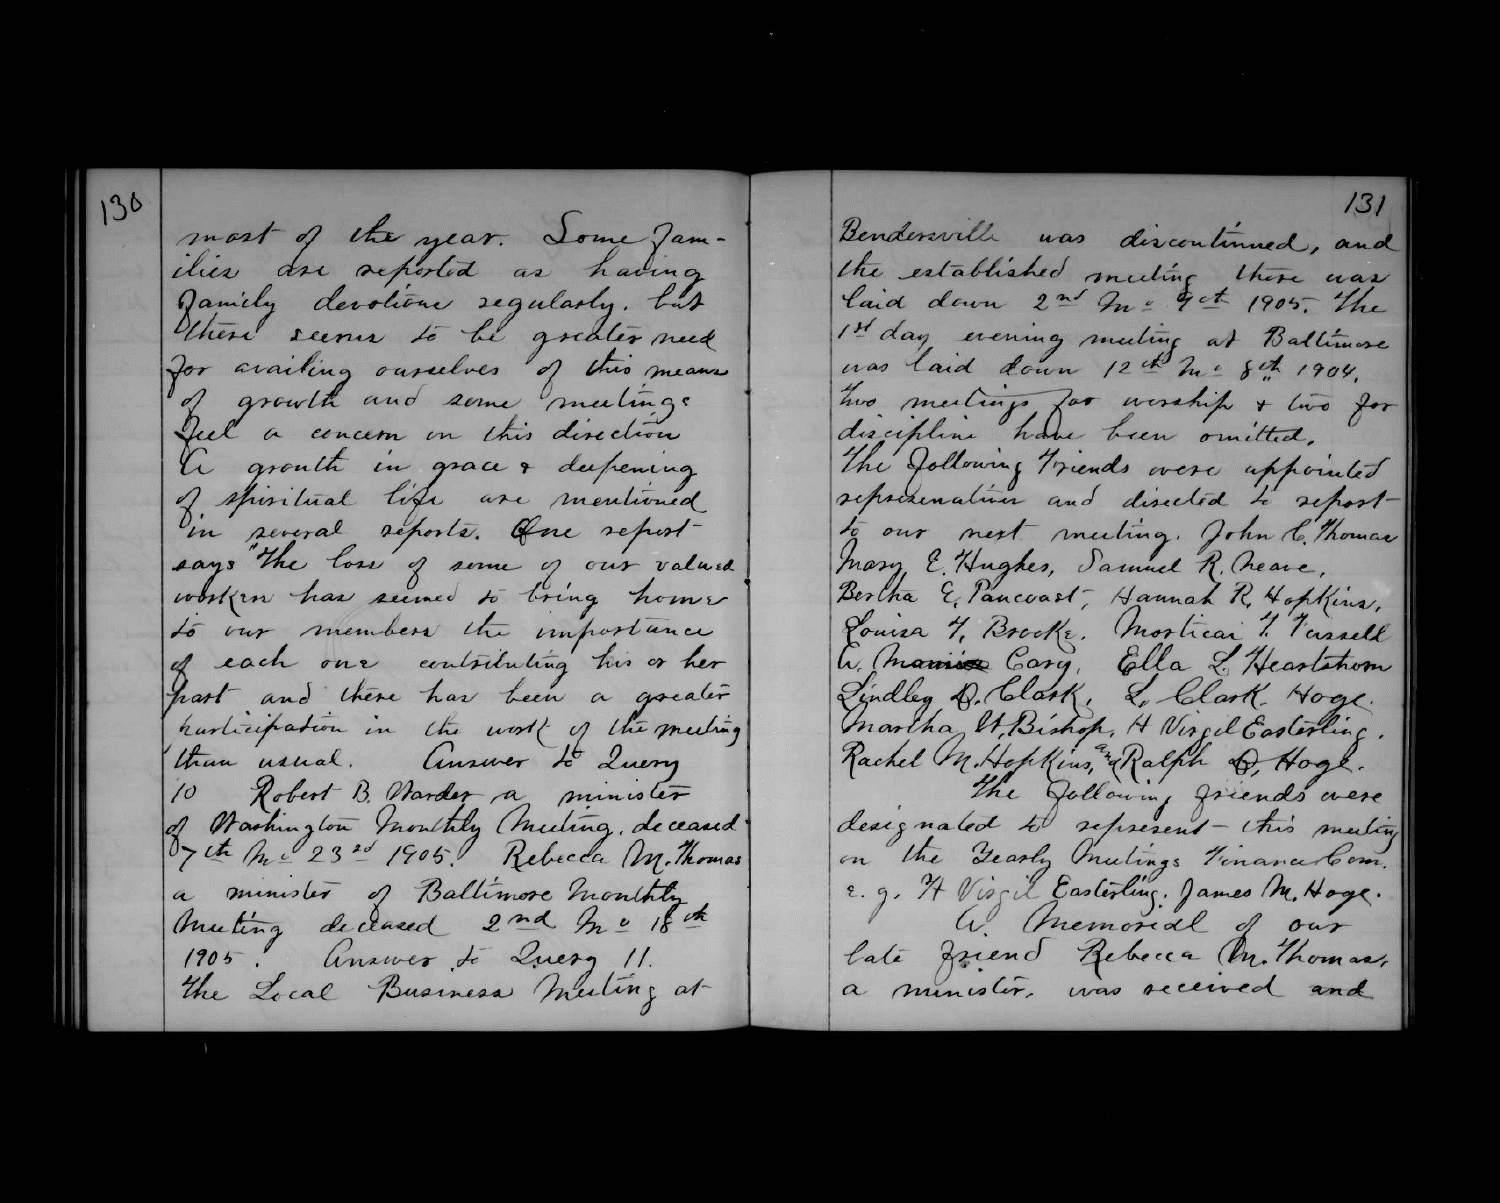 130
most of the year. Some fam-
ilies are reported as having
family devotions regularly. but
there seems to be greater need
for availing ourselves of this means
of growth and some meetings
feel a concern in this direction
A growth in grace & deepening
of spiritual life are mentioned
in several reports. One report
says "The loss of some of our valued
workers has seemed to bring home
to our members the importance
of each one contributing his or her
part and there has been a greater
participation in the work of the meeting
than usual. Answer to Query
10 Robert B. Warder a minister
of Washington Monthly Meeting. deceased
7th Mo 23rd 1905. Rebecca M. Thomas
a minister of Baltimore Monthly
Meeting deceased 2nd Mo 18th
1905. Answer to Query 11.
The Local Business Meeting at
131
Bendersville was discontinued, and
the established meeting there was
laid down 2nd Mo 9th 1905. The
1st day evening meeting at Baltimore
was laid down 12th Mo 8th 1904.
Two meetings for worship & two for
discipline have been omitted.
The following Friends were appointed
representatives and directed to report
to our next meeting. John C. Thomas
Mary E. Hughes, Samuel R. Neave,
Bertha E. Pancoast, Hannah R. Hopkins,
Louisa T. Brooke. Morticai T. Fussell
A. Cary. Ella L. Heartsthorn
Lindley D. Clark, L. Clark. Hoge.
Martha W. Bishop, H Virgil Easterling.
Rachel M. Hopkins, and Ralph D, Hoge.
The following friends were
designated to represent this meeting
on the Yearly Meetings Finance Com.
e. g. H Virgil Easterling. James M. Hoge.
A. Memorial of our
late friend Rebecca M. Thomas,
a minister. was received and